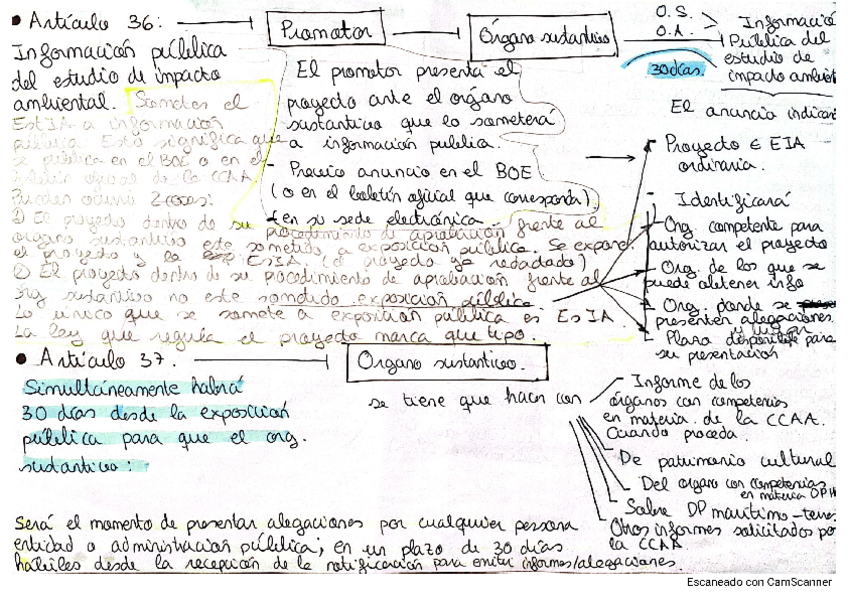 • Artículo 36:
Promotor
Órgano sustantivo
O.S.
O.A.
30 días.
Informació
Pública del
estudio de
impacto ambient
Información pública
del estudio de impacto
ambiental. Someter el
EsIA a información
pública. Esto significa que
se publica en el BOE o en el
boletín oficial de la CCAA
Pueden ocurrir 2 cosas:
El promotor presenta el
proyecto ante el órgano
sustantivo que lo someterá
a información pública.
- Previo anuncio en el BOE
(o en el boletín oficial que corresponda)
y en su sede electrónica
El anuncio indicar
- Proyecto ∈ EIA
ordinaria.
- Identificará
- Org. competente para
autorizar el proyecto
- Org. de los que se
puede obtener info
- Org. donde se
presenten alegaciones
y lugar
- Plazo disponible para
su presentación
1) El proyecto dentro de su procedimiento de aprobación frente al
órgano sustantivo este sometido a exposición pública. Se expone
el proyecto y la EsIA. (el proyecto ya redactado)
2) El proyecto dentro de su procedimiento de aprobación frente al
org sustantivo no este sometido exposición pública
Lo único que se somete a exposición pública es EsIA.
La ley que regula el proyecto marca que tipo.
• Artículo 37.
Organo sustantivo.
Simultáneamente habrá
30 días desde la exposición
pública para que el org.
sustantivo:
se tiene que hacer con
Informe de los
órganos con competencias
en materia de la CCAA.
Cuando proceda.
De patrimonio cultural
Del organo con competencias
en materia DPH
Sobre DP marítimo-terres
Otros informes solicitados por
la CCAA
Será el momento de presentar alegaciones por cualquier persona
entidad o administración pública; en un plazo de 30 días
hábiles desde la recepción de la notificación para emitir informes/alegaciones.
Escaneado con CamScanner